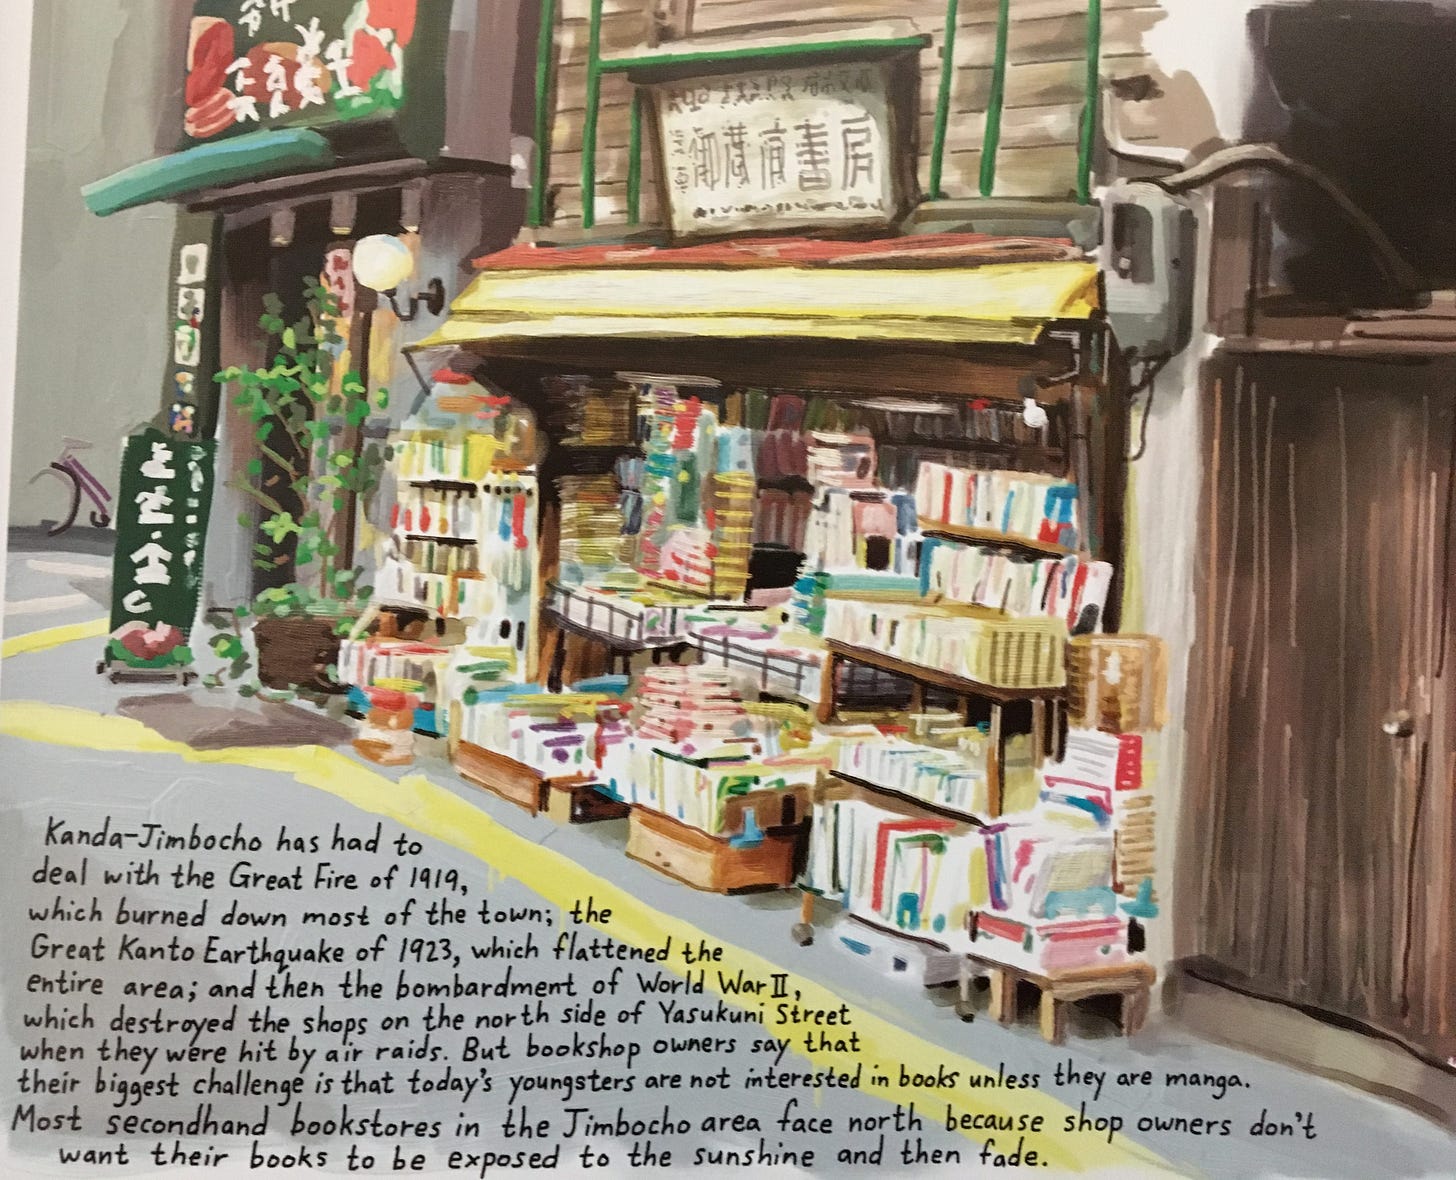 御蔵前書房
Kanda-Jimbocho has had to
deal with the Great Fire of 1919,
which burned down most of the town; the
Great Kanto Earthquake of 1923, which flattened the
entire area; and then the bombardment of World War II,
which destroyed the shops on the north side of Yasukuni Street
when they were hit by air raids. But bookshop owners say that
their biggest challenge is that today's youngsters are not interested in books unless they are manga.
Most secondhand bookstores in the Jimbocho area face north because shop owners don't
want their books to be exposed to the sunshine and then fade.